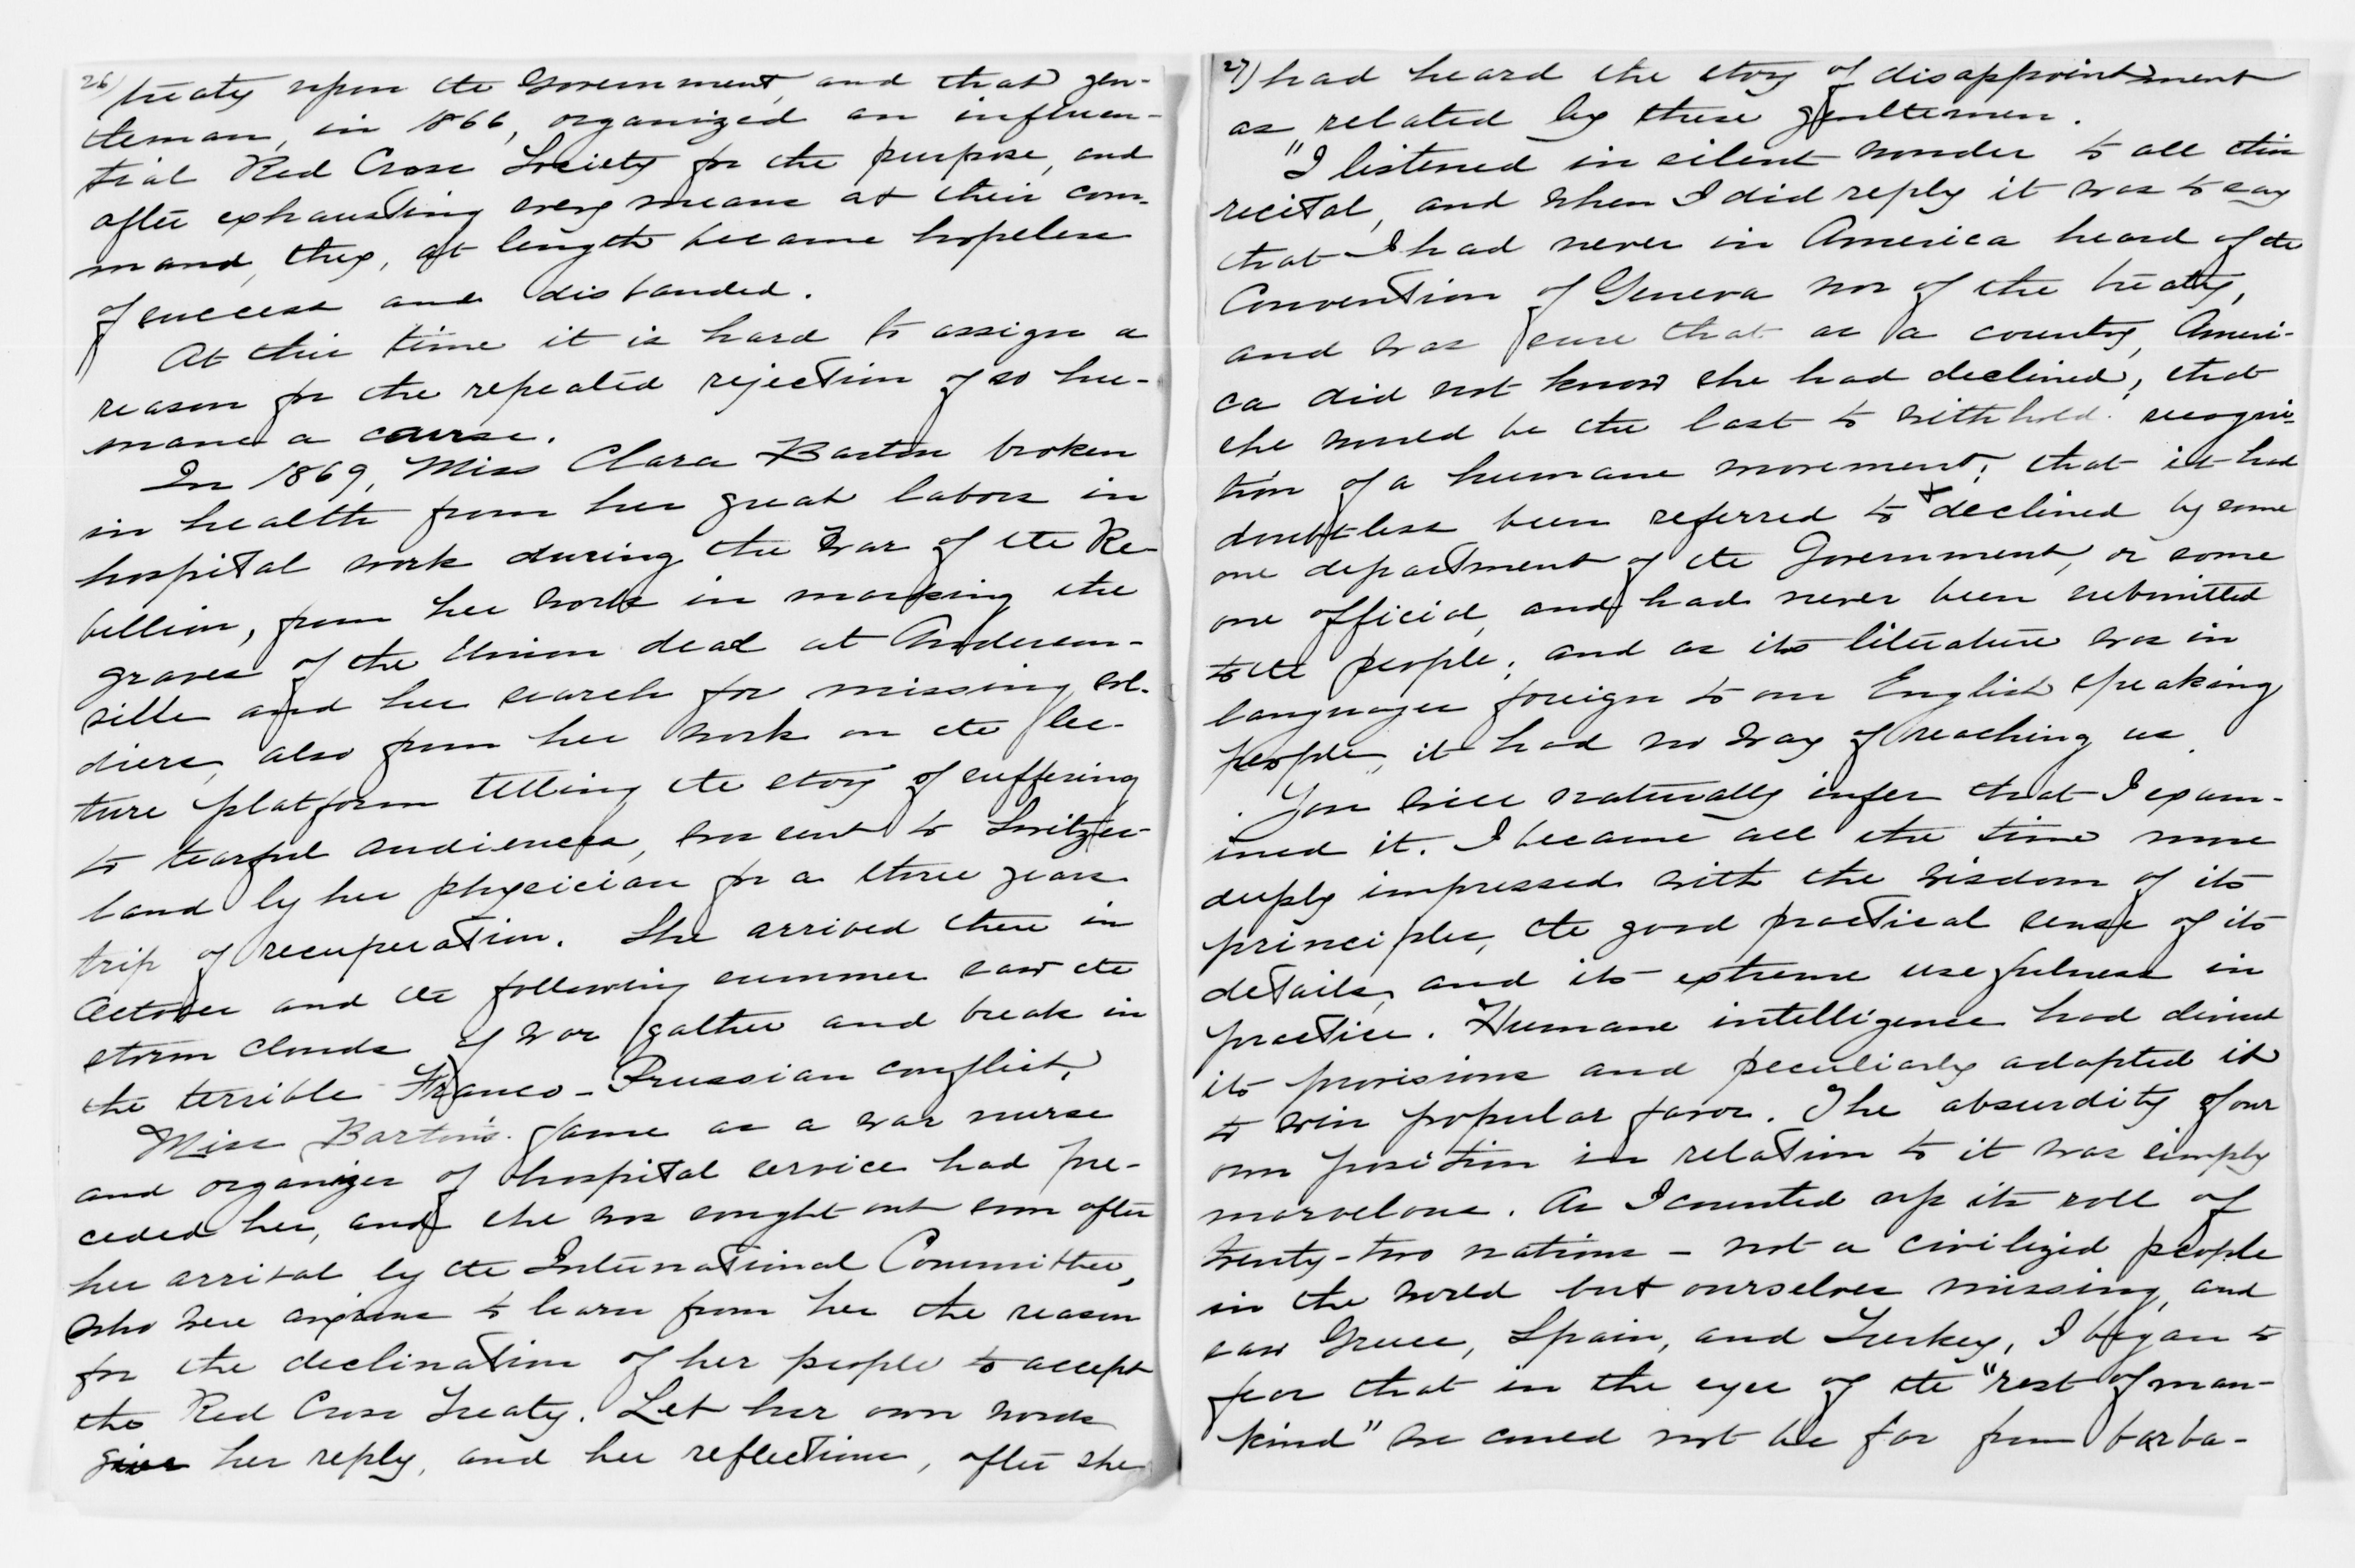 26) treaty upon the Government, and that gen-
tleman, in 1866, organized an influen-
tial Red Cross Society for the purpose, and
after exhausting every means at their com-
mand, they, at length became hopeless
of success and disbanded.
At this time it is hard to assign a
reason for the repeated rejection of so hu-
mane a course.
In 1869, Miss Clara Barton broken
in health from her great labors in
hospital work during the War of the Re-
bellion, from her work in marking the
graves of the Union dead at Anderson-
ville and her search for missing sol-
diers, also from her work on the lec-
ture platform telling the story of suffering
to tearful audiences, was sent to Switzer-
land by her physician for a three years
trip of recuperation. She arrived there in
October and the following summer saw the
storm clouds of war gather and break in
the terrible Franco-Prussian conflict.
Miss Barton's fame as a war nurse
and organizer of hospital service had pre-
ceded her, and she was sought out soon after
her arrival by the International Committee,
who were anxious to learn from her the reason
for the declination of her people to accept
the Red Cross Treaty. Let her own words
give her reply, and her reflections, after she
27) had heard the story of disappointment
as related by these gentlemen.
"I listened in silent wonder to all this
recital, and when I did reply it was to say
that I had never in America heard of the
Convention of Geneva nor of the treaty,
and was sure that as a country, Ameri-
ca did not know she had declined; that
she would be the last to withhold recogni-
tion of a humane movement; that it had
doubtless been referred to & declined by some
one department of the Government, or some
one official, and had never been submitted
to the people; and as its literature was in
languages foreign to our English speaking
people, it had no way of reaching us.
"You will naturally infer that I exam-
ined it. I became all the time more
deeply impressed with the wisdom of its
principles, the good practical sense of its
details, and its extreme usefulness in
practice. Humane intelligence had devised
its provisions and peculiarly adapted it
to win popular favor. The absurdity of our
own position in relation to it was simply
marvelous. As I counted up its roll of
twenty-two nations - not a civilized people
in the world but ourselves missing, and
saw Greece, Spain, and Turkey, I began to
fear that in the eyes of the "rest of man-
kind" we could not be far from barba-